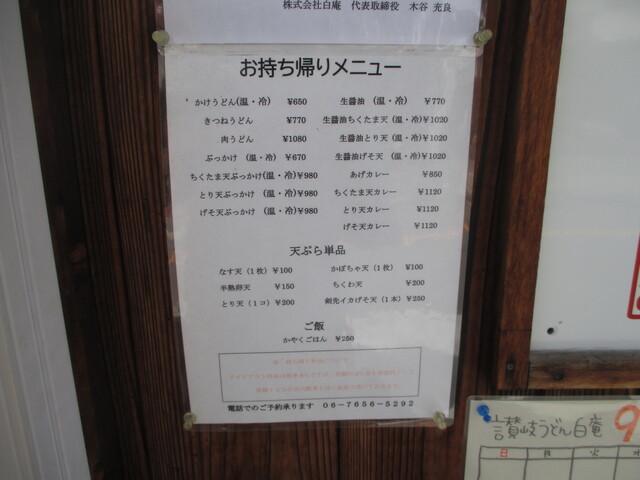 株式会社白庵 代表取締役 木谷 充良
お持ち帰りメニュー
かけうどん(温・冷) ¥650
きつねうどん ¥770
肉うどん ¥1080
ぶっかけ (温・冷) ¥670
ちくたま天ぶっかけ(温・冷)¥980
とり天ぶっかけ (温・冷)¥980
げそ天ぶっかけ (温・冷)¥980
生醤油 (温・冷) ¥770
生醤油ちくたま天 (温・冷)¥1020
生醤油とり天 (温・冷)¥1020
生醤油げそ天 (温・冷)¥1020
あげカレー ¥850
ちくたま天カレー ¥1120
とり天カレー ¥1120
げそ天カレー ¥1120
天ぷら単品
なす天(1枚)¥100
半熟卵天 ¥150
とり天(1コ)¥200
かぼちゃ天(1枚) ¥100
ちくわ天 ¥200
剣先イカげそ天(1本)¥250
ご飯
かやくごはん ¥250
電話でのご予約承ります 06-7656-5292
讃岐うどん白庵 9
日 月 火 水